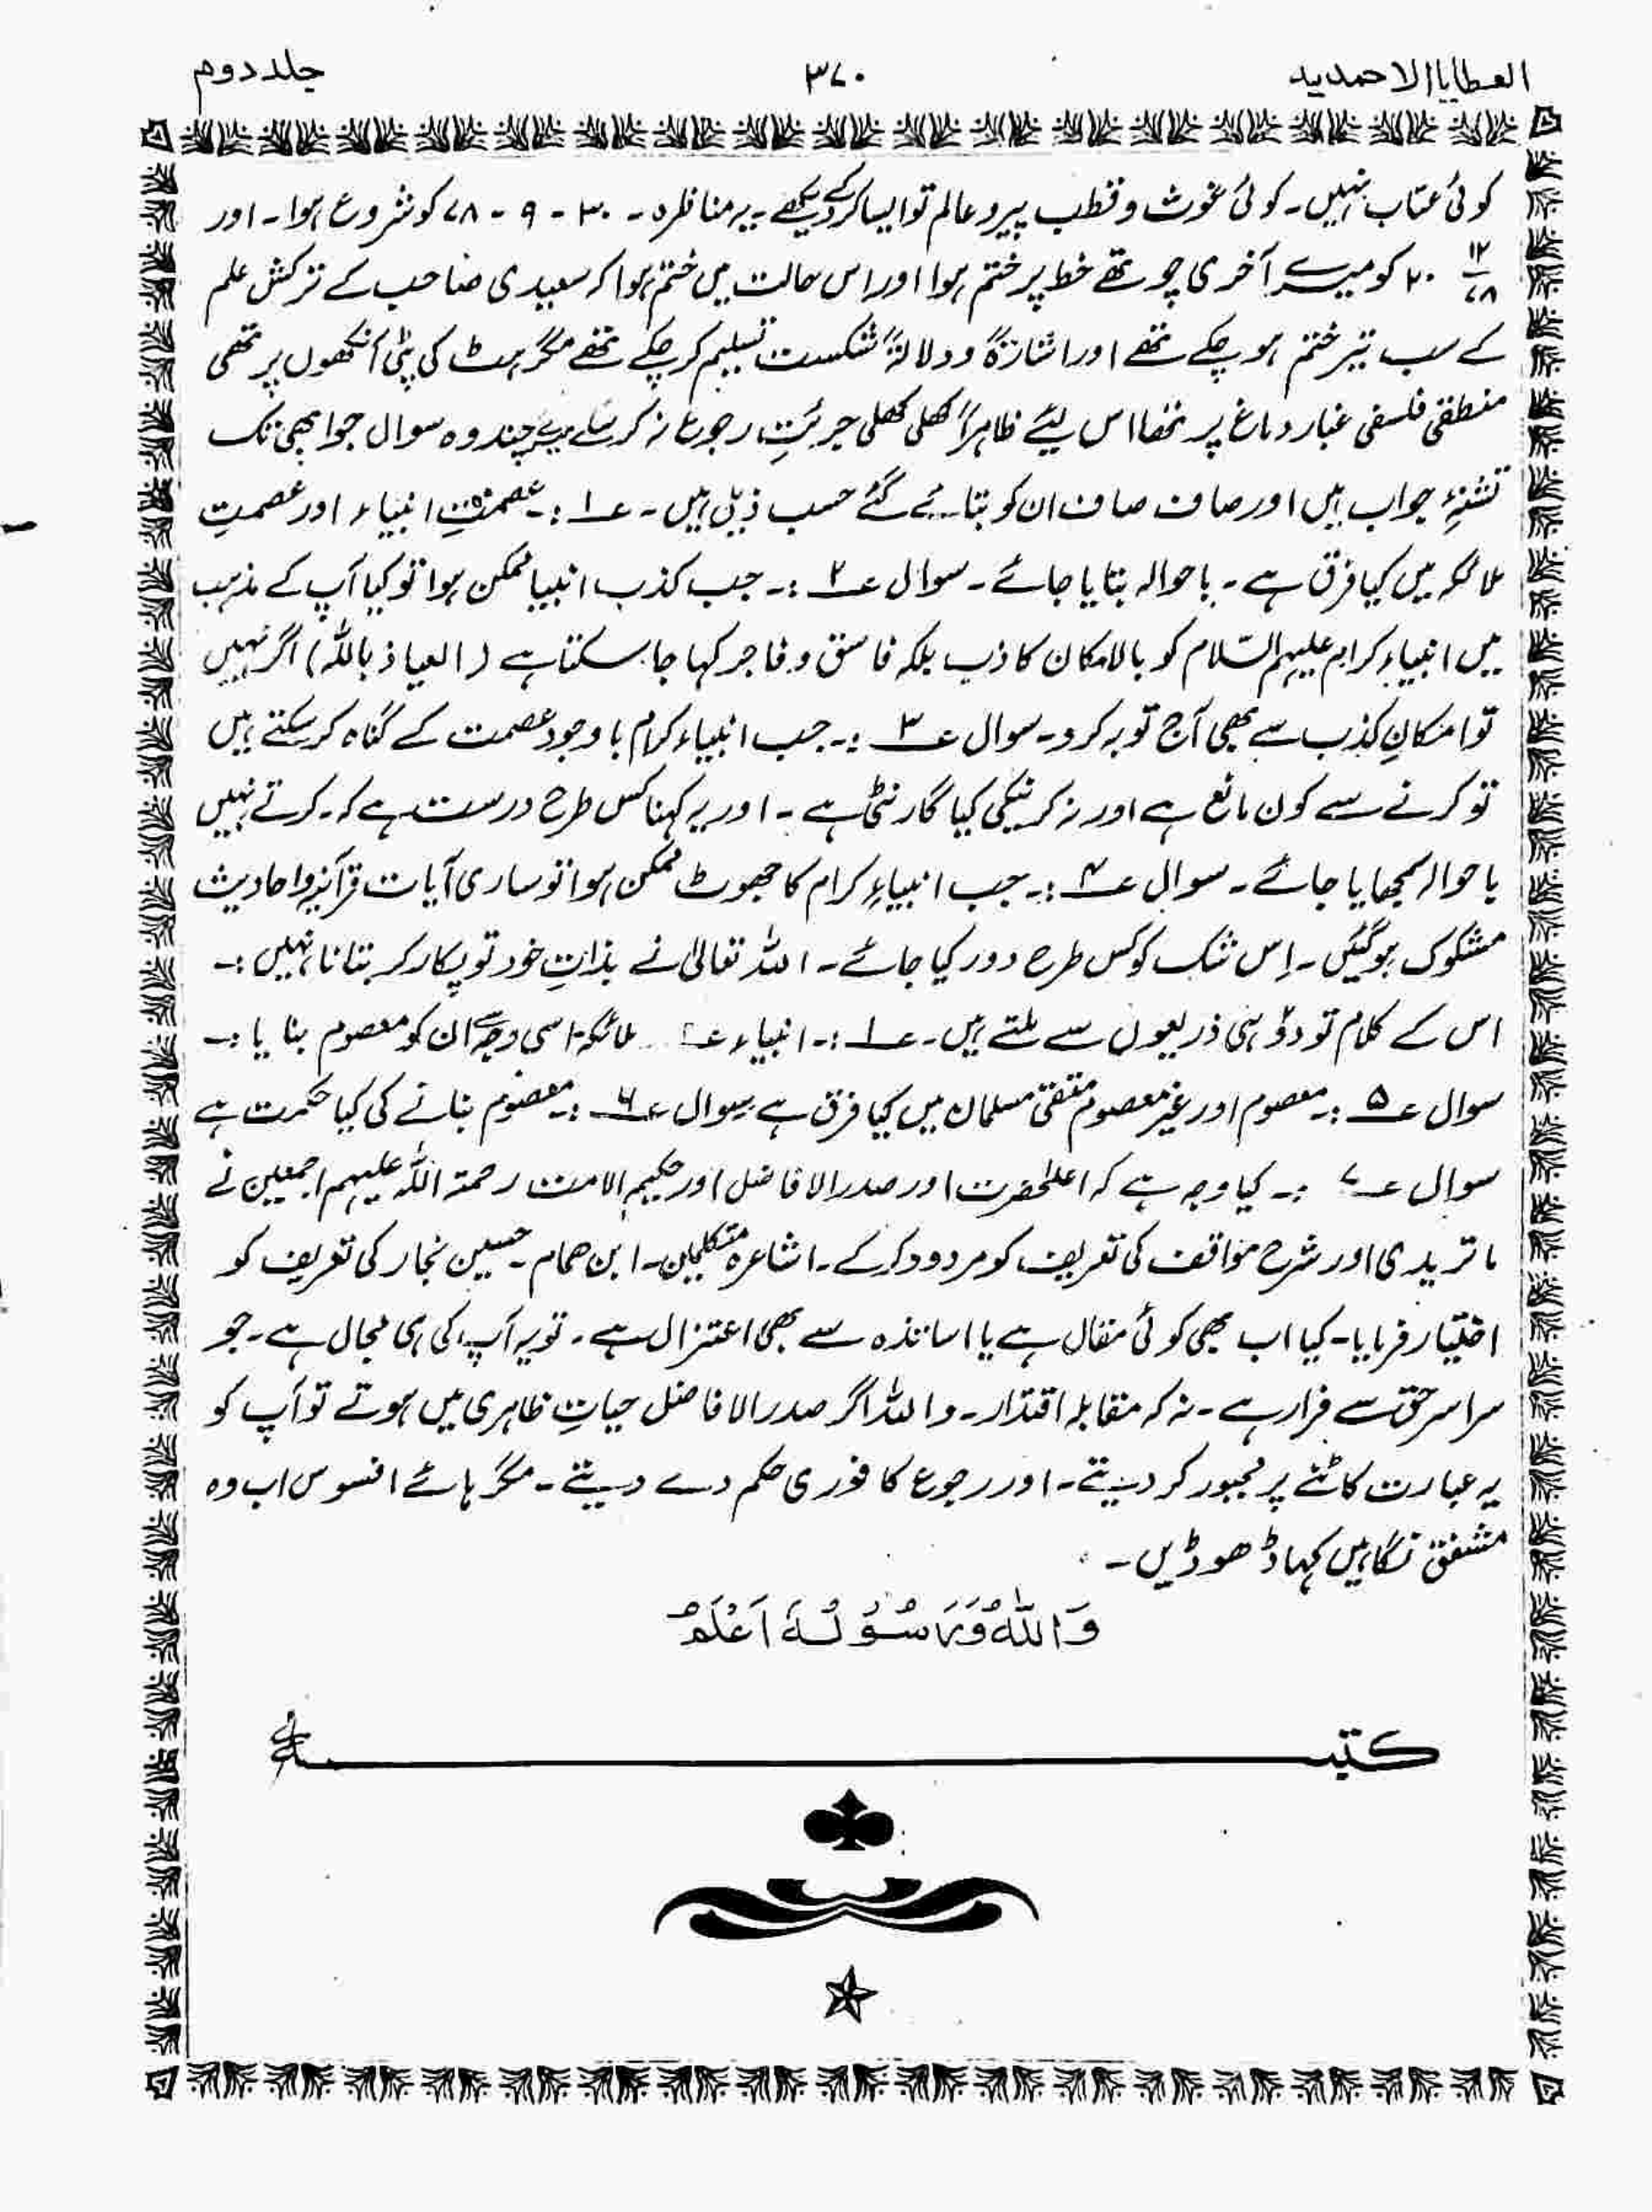 العطایا الاحمدیہ ۳۷۰ جلد دوم
کوئی عتاب نہیں۔ کوئی غوث و قطب پیر و عالم تو ایسا کر کے دیکھے۔ یہ مناظرہ۔ ۳۰ - ۹ - ۷۸ کو شروع ہوا۔ اور
۲۰ ۱۲/۷۸ کو میرے آخری چوتھے خط پر ختم ہوا اور اس حالت میں ختم ہوا کہ سعیدی صاحب کے ترکش علم
کے سب تیر ختم ہو چکے تھے اور اشارۃً و دلالۃً شکست تسلیم کر چکے تھے مگر ہٹ کی پٹی آنکھوں پر تھی
منطقی فلسفی غبار دماغ پر تھا اس لیئے ظاہراً کھلی کھلی جرئتِ رجوع نہ کر سکے میرے چند وہ سوال جو ابھی تک
تشنۂِ جواب ہیں اور صاف صاف ان کو بتائے گئے حسب ذیل ہیں۔ ؏۱ :۔ عصمتِ انبیاء اور عصمتِ
ملائکہ میں کیا فرق ہے۔ باحوالہ بتایا جائے۔ سوال ؏۲ :۔ جب کذب انبیا ممکن ہوا تو کیا آپ کے مذہب
میں انبیاءِ کرام علیہم السّلام کو بالامکان کاذب بلکہ فاسق و فاجر کہا جا سکتا ہے (العیاذ باللہ) اگر نہیں
تو امکانِ کذب سے بھی آج توبہ کر دو۔ سوال ؏۳ :۔ جب انبیاء کرام باوجود عصمت کے گناہ کر سکتے ہیں
تو کرنے سے کون مانع ہے اور نہ کرنیکی کیا گارنٹی ہے۔ اور یہ کہنا کس طرح درست ہے کہ۔ کرتے نہیں
باحوالہ سمجھایا جائے۔ سوال ؏۴ :۔ جب انبیاءِ کرام کا جھوٹ ممکن ہوا تو ساری آیات قرآنیہ و احادیث
مشکوک ہوگئیں۔ اِس شک کو کس طرح دور کیا جائے۔ اللہ تعالیٰ نے بذاتِ خود تو پکار کر بتانا نہیں :۔
اس کے کلام تو دو ہی ذریعوں سے ملتے ہیں۔ ؏۱ :۔ انبیاء ؏۲ ملائکہ۔ اسی وجہ سے ان کو معصوم بنایا :۔
سوال ؏۵ :۔ معصوم اور غیر معصوم متقی مسلمان میں کیا فرق ہے سوال ؏۶ :۔ معصوم بنانے کی کیا حکمت ہے
سوال ؏۷ :۔ کیا وجہ ہے کہ اعلحضرت اور صدر الافاضل اور حکیم الامت رحمۃ اللہ علیہم اجمعین نے
ماتریدی اور شرح مواقف کی تعریف کو مردود کر کے۔ اشاعرہ متکلمین۔ ابن ھمام۔ حسین نجار کی تعریف کو
اختیار فرمایا۔ کیا اب بھی کوئی مقال ہے یا اساتذہ سے بھی اعتزال ہے۔ تو یہ آپ کی ہی مجال ہے۔ جو
سراسر حق سے فرار ہے۔ نہ کہ مقابلہ اقتدار۔ واللہ اگر صدر الافاضل حیاتِ ظاہری میں ہوتے تو آپ کو
یہ عبارت کاٹنے پر مجبور کر دیتے۔ اور رجوع کا فوری حکم دے دیتے۔ مگر ہائے افسوس اب وہ
مشفق نگاہیں کہا ڈھوڈیں۔
وَاللّٰهُ وَرَسُوْلُهٗ اَعْلَمُ
کتبہ